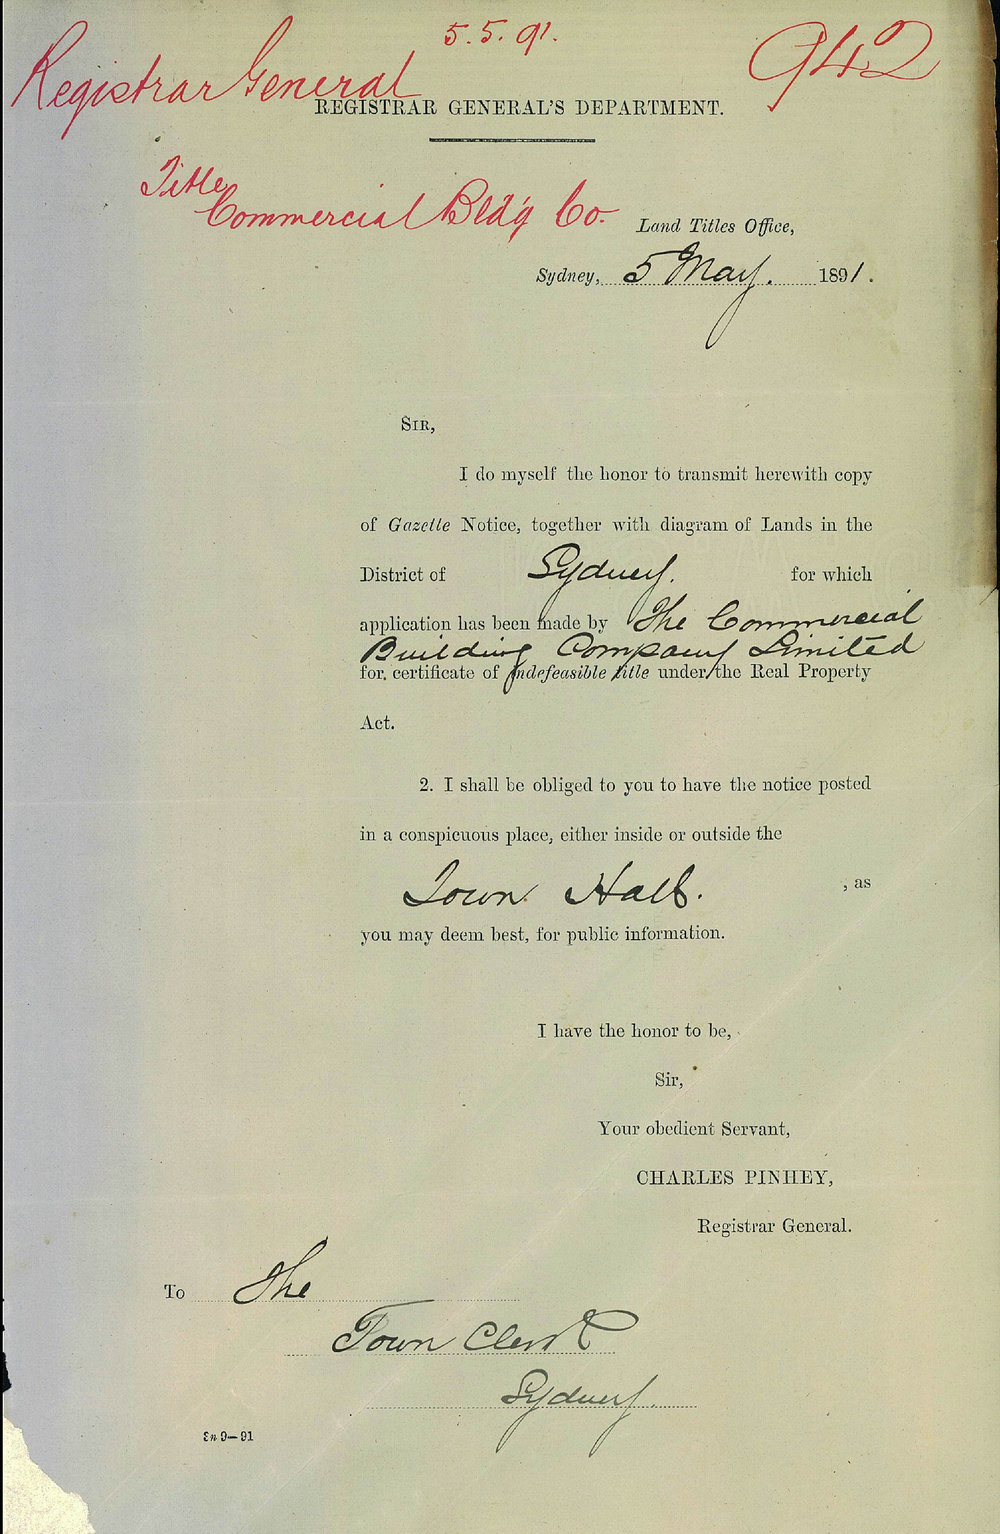 5. 5. 91.
942
Registrar General
REGISTRAR GENERAL'S DEPARTMENT.
Title
Commercial Bld'g Co.
Land Titles Office,
Sydney, 5 May. 1891.
SIR,
I do myself the honor to transmit herewith copy
of Gazette Notice, together with diagram of Lands in the
District of Sydney. for which
application has been made by The Commercial
Building Company Limited
for certificate of indefeasible title under the Real Property
Act.
2. I shall be obliged to you to have the notice posted
in a conspicuous place, either inside or outside the
Town Hall. , as
you may deem best, for public information.
I have the honor to be,
Sir,
Your obedient Servant,
CHARLES PINHEY,
Registrar General.
To The
Town Clerk
Sydney.
9—91